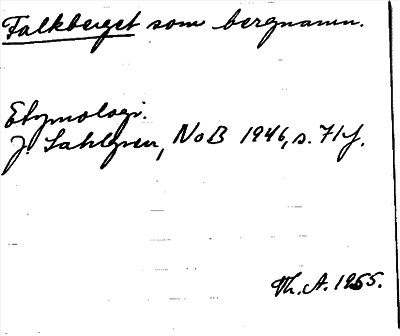 Falkberget som bergnamn.
Etymologi.
J. Sahlgren, NoB 1946, s. 71 f.
Th. A. 1955.